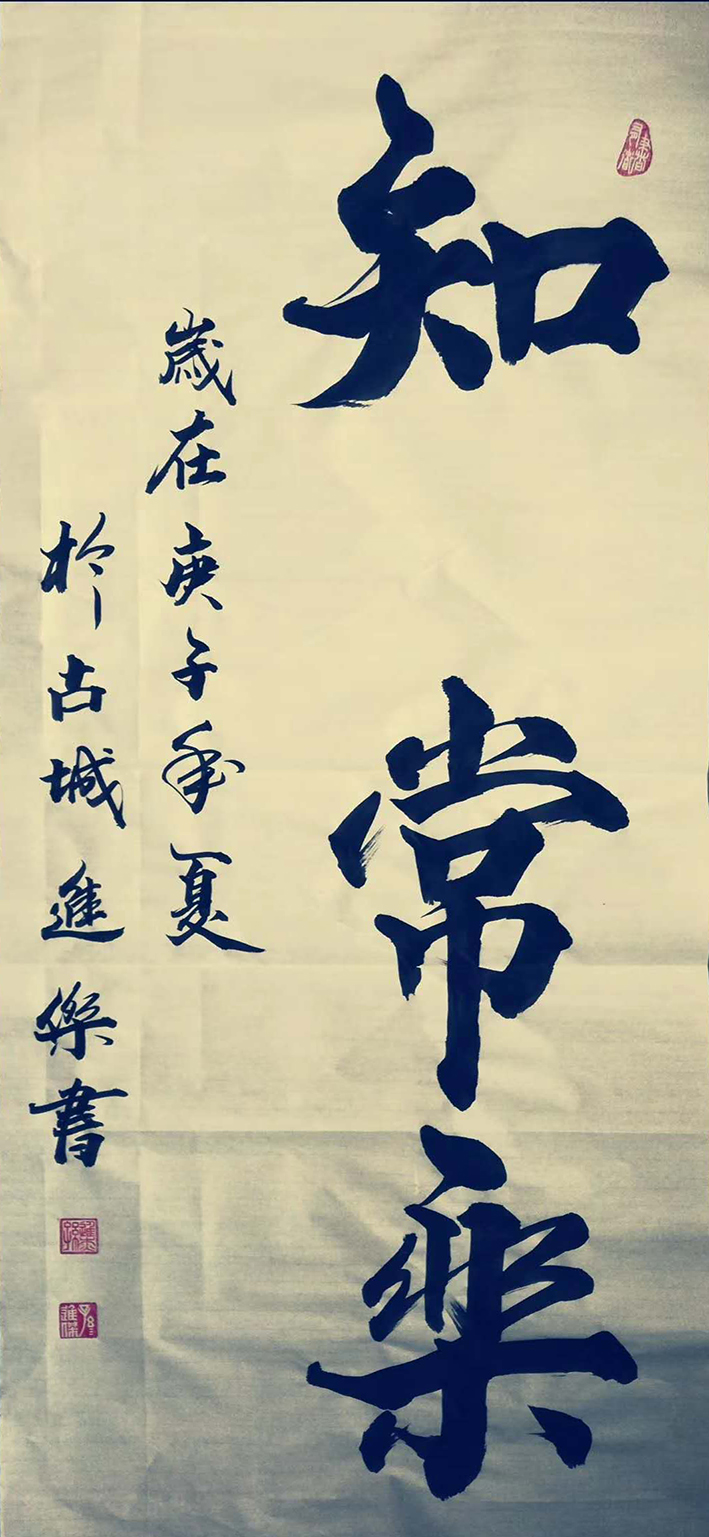 知常樂
歲在庚子年夏
於古城進樂書